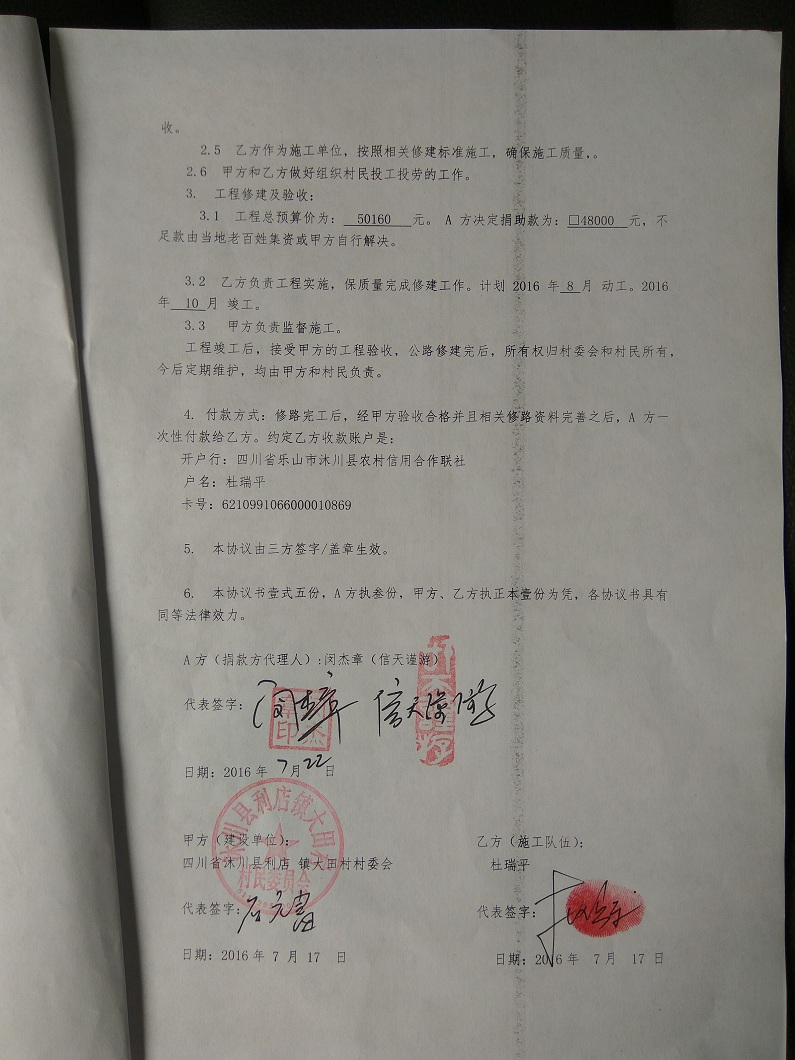 收。
2.5 乙方作为施工单位，按照相关修建标准施工，确保施工质量，。
2.6 甲方和乙方做好组织村民投工投劳的工作。
3. 工程修建及验收：
3.1 工程总预算价为： 50160 元。 A 方决定捐助款为：□48000 元，不
足款由当地老百姓集资或甲方自行解决。
3.2 乙方负责工程实施，保质量完成修建工作。计划 2016 年 8 月 动工。2016
年 10 月 竣工。
3.3 甲方负责监督施工。
工程竣工后，接受甲方的工程验收，公路修建完后，所有权归村委会和村民所有，
今后定期维护，均由甲方和村民负责。
4. 付款方式：修路完工后，经甲方验收合格并且相关修路资料完善之后，A 方一
次性付款给乙方。约定乙方收款账户是：
开户行：四川省乐山市沐川县农村信用合作联社
户名：杜瑞平
卡号：6210991066000010869
5. 本协议由三方签字/盖章生效。
6. 本协议书壹式五份，A 方执叁份，甲方、乙方执正本壹份为凭，各协议书具有
同等法律效力。
A 方（捐款方代理人）:闵杰章（信天谨游）
代表签字：闵杰章 信天谨游
日期：2016 年 7 月 22 日
沐川县利店镇大田村
村民委员会
甲方（建设单位）： 乙方（施工队伍）：
四川省沐川县利店 镇大田村村委会 杜瑞平
代表签字： 代表签字：
日期：2016 年 7 月 17 日 日期：2016 年 7 月 17 日